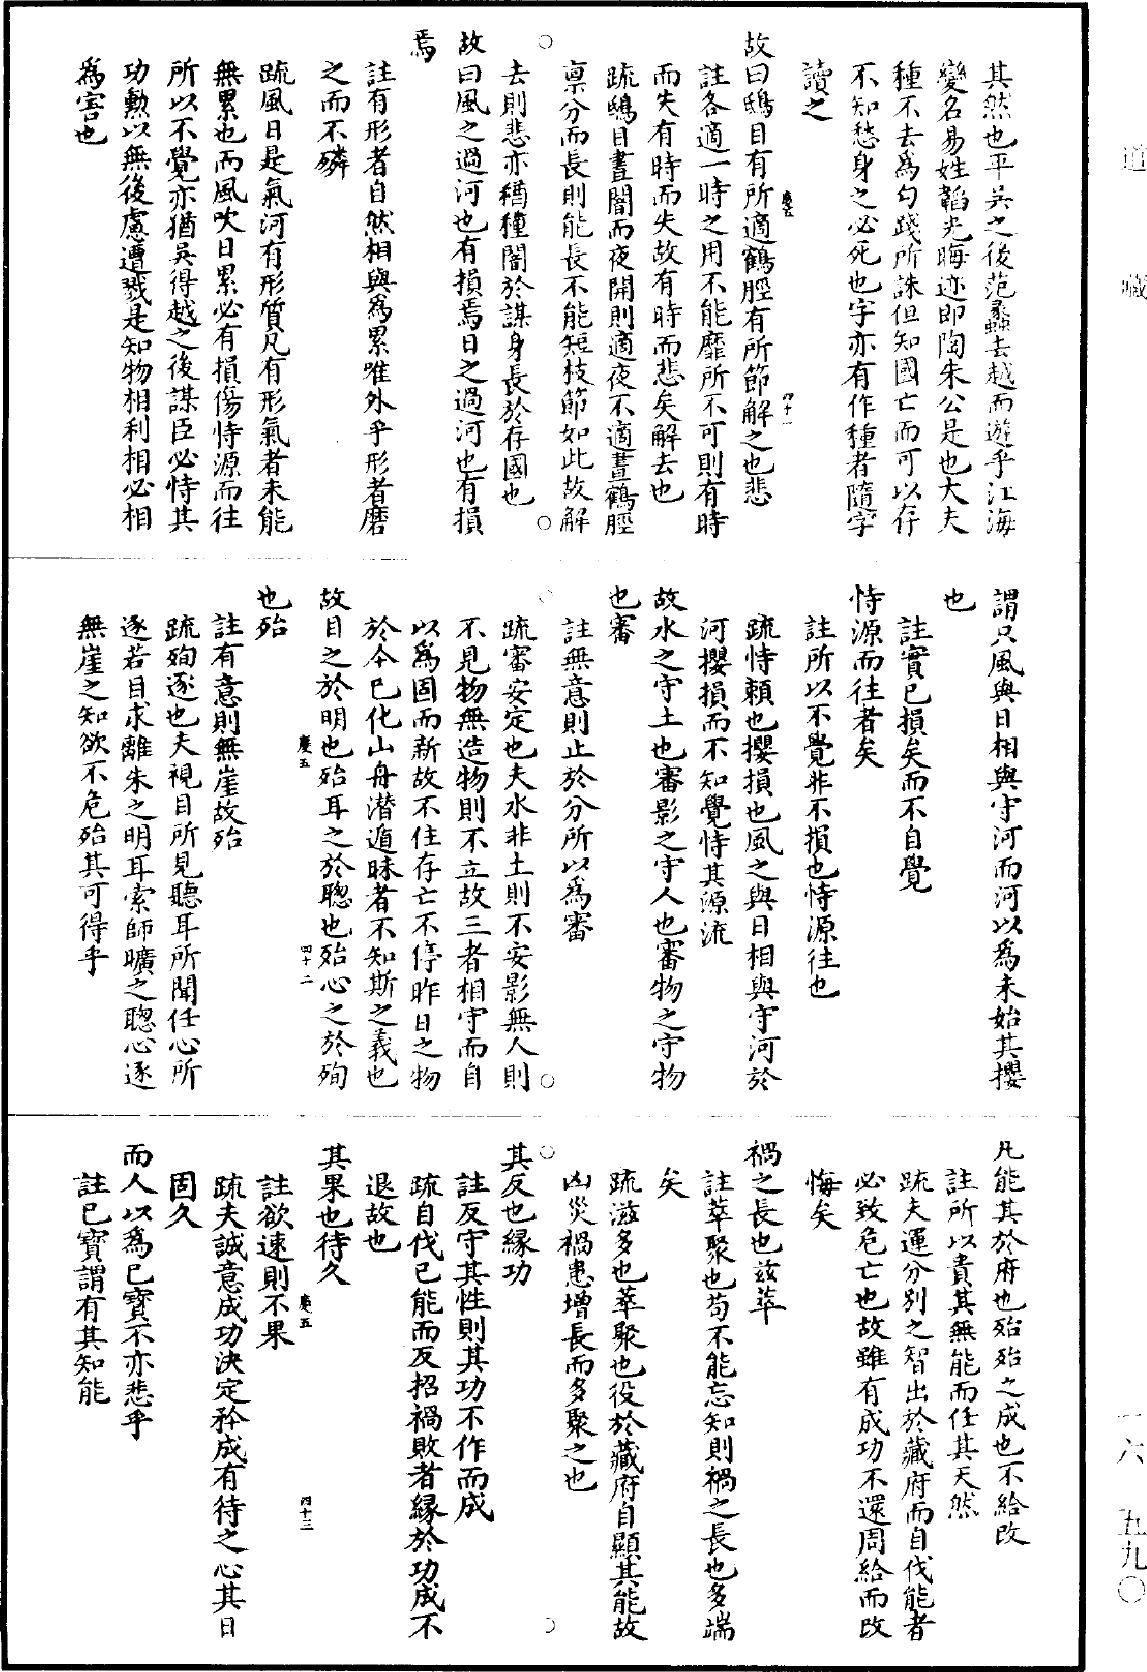 道藏
其然也平吳之後范蠡去越而遊乎江海
變名易姓韜光晦迹即陶朱公是也大夫
種不去爲勾踐所誅但知國亡而可以存
不知愁身之必死也字亦有作種者隨字
讀之
故曰鴟目有所適鶴脛有所節解之也悲
註各適一時之用不能靡所不可則有時
而失有時而失故有時而悲矣解去也
疏鴟目晝闇而夜開則適夜不適晝鶴脛
禀分而長則能長不能短枝節如此故解
去則悲亦猶種闇於謀身長於存國也
故曰風之過河也有損焉日之過河也有損
焉
註有形者自然相與爲累唯外乎形者磨
之而不磷
疏風日是氣河有形質凡有形氣者未能
無累也而風吹日累必有損傷恃源而往
所以不覺亦猶吳得越之後謀臣必恃其
功勳以無後慮遭戮是知物相利相必相
爲害也
慶五
四十一
謂只風與日相與守河而河以爲未始其攖
也
註實已損矣而不自覺
恃源而往者矣
註所以不覺非不損也恃源往也
疏恃賴也攖損也風之與日相與守河於
河攖損而不知覺恃其源流
故水之守土也審影之守人也審物之守物
也審
註無意則止於分所以爲審
疏審安定也夫水非土則不安影無人則
不見物無造物則不立故三者相守而自
以爲固而新故不住存亡不停昨日之物
於今已化山舟潛遁昧者不知斯之義也
故目之於明也殆耳之於聰也殆心之於殉
也殆
註有意則無崖故殆
疏殉逐也夫視目所見聽耳所聞任心所
逐若目求離朱之明耳索師曠之聰心逐
無崖之知欲不危殆其可得乎
慶五
四十二
凡能其於府也殆殆之成也不給改
註所以貴其無能而任其天然
疏夫運分別之智出於藏府而自伐能者
必致危亡也故雖有成功不還周給而改
悔矣
禍之長也玆萃
註萃聚也苟不能忘知則禍之長也多端
矣
疏滋多也萃聚也役於藏府自顯其能故
凶災禍患增長而多聚之也
其反也緣功
註反守其性則其功不作而成
疏自伐已能而反招禍敗者緣於功成不
退故也
其果也待久
註欲速則不果
疏夫誠意成功決定矜成有待之心其日
固久
而人以爲已寶不亦悲乎
註已寶謂有其知能
慶五
四十三
一六 五九〇